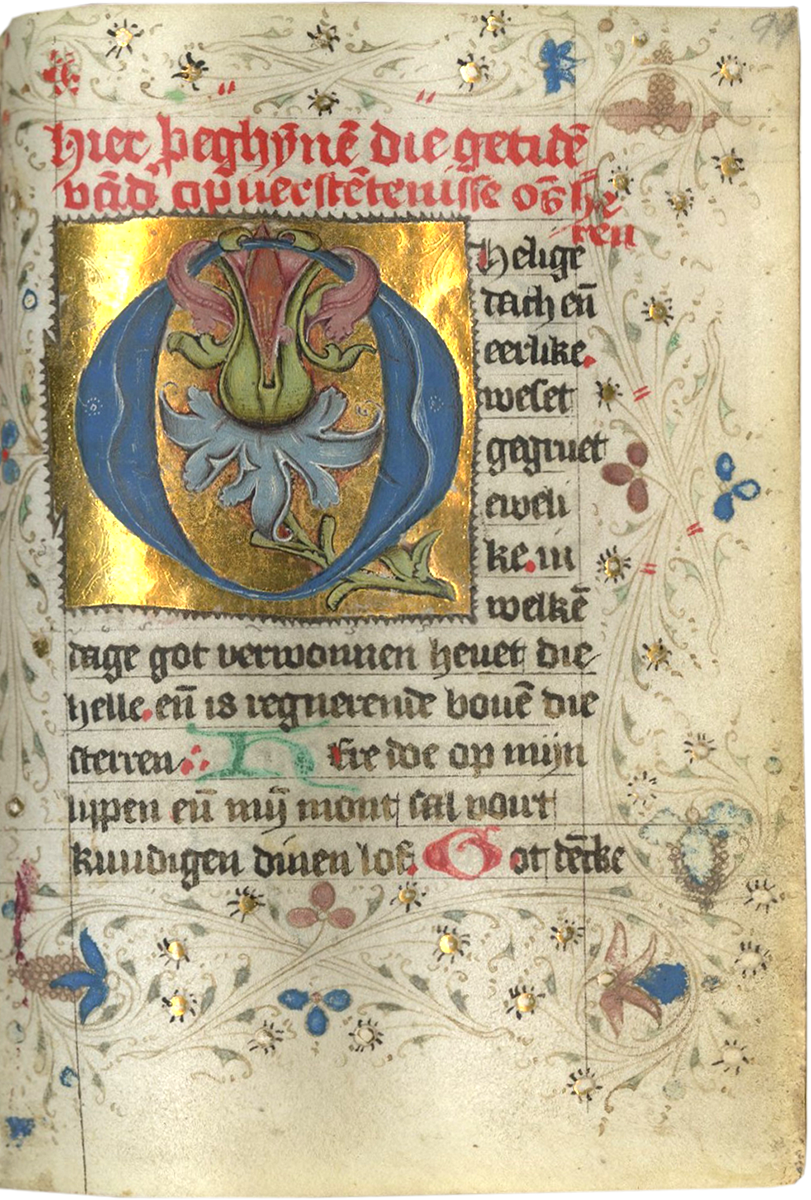 hier beghȳnē die getidē
vād̄ opuerstētenisse oēs he
ren
O helige
dach en̄
eerlike.
weset
gegruet
eweli
ke. in
welkē
dage got verwonnen heuet die
helle. en̄ is regnerende bouē die
sterren. H ere doe op mijn
lippen en̄ mȳ mont sal vort
kundigen dinen lof. G ot dēcke